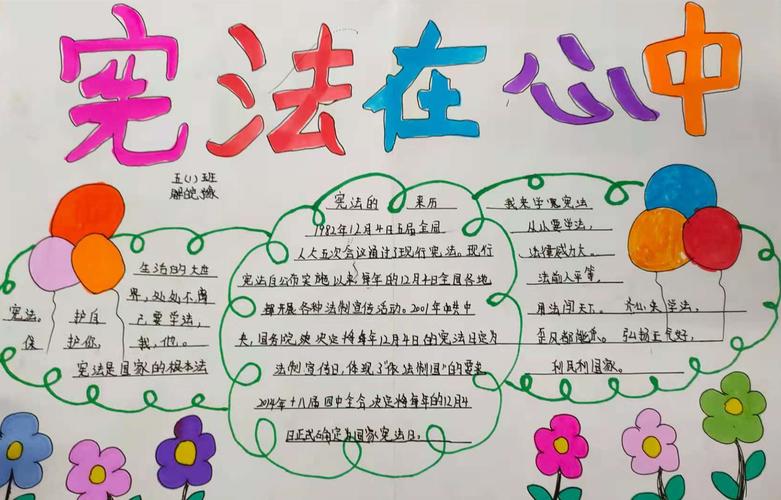 宪法在心中
五(1)班
生活的大世
界,处处不离
宪法。 护自
己要学法,
保 护你、
我、他。
宪法是国家的根本法
宪法的 来历
1982年12月4日五届全国
人大五次会议通过了现行宪法。现行
宪法自公布实施以来每年的12月4日全国各地
都开展各种法制宣传活动。2001年中共中
央,国务院决决定将每年12月4日的宪法日定为
法制宣传日,体现了"依法制国"的要求
2014年十八届四中全会决定将每年的12月4
日正式确定为国家宪法日。
我来学宪法
从小要学法,
法律威力大。
法前人平等,
用法闯天下。 齐心来学法,
歪风都能 弘扬正气好,
利民利国家。